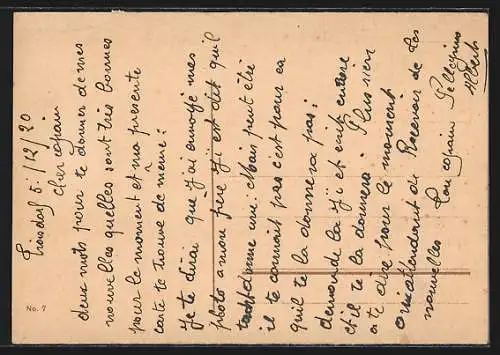 Troisdorf 5/12/20
Cher copain
deux mots pour te donner de mes
nouvelles quelles sont très bonnes
pour le moment et ma presente
carte te trouve de maine.
Je te dirai que j'ai envoyé mes
photo a mon frere j'i est dit qu'il
donne une. Mais peut étre
il te connait pas c'est pour ca
qu'il te la donnera pas.
demande la j'i et écrit encore
et il te la donnera. Plus rien
a te dire pour le moment
en attendant de Recevoir de tes
nouvelles Ton copain Pellegrino
Albert
No. 7